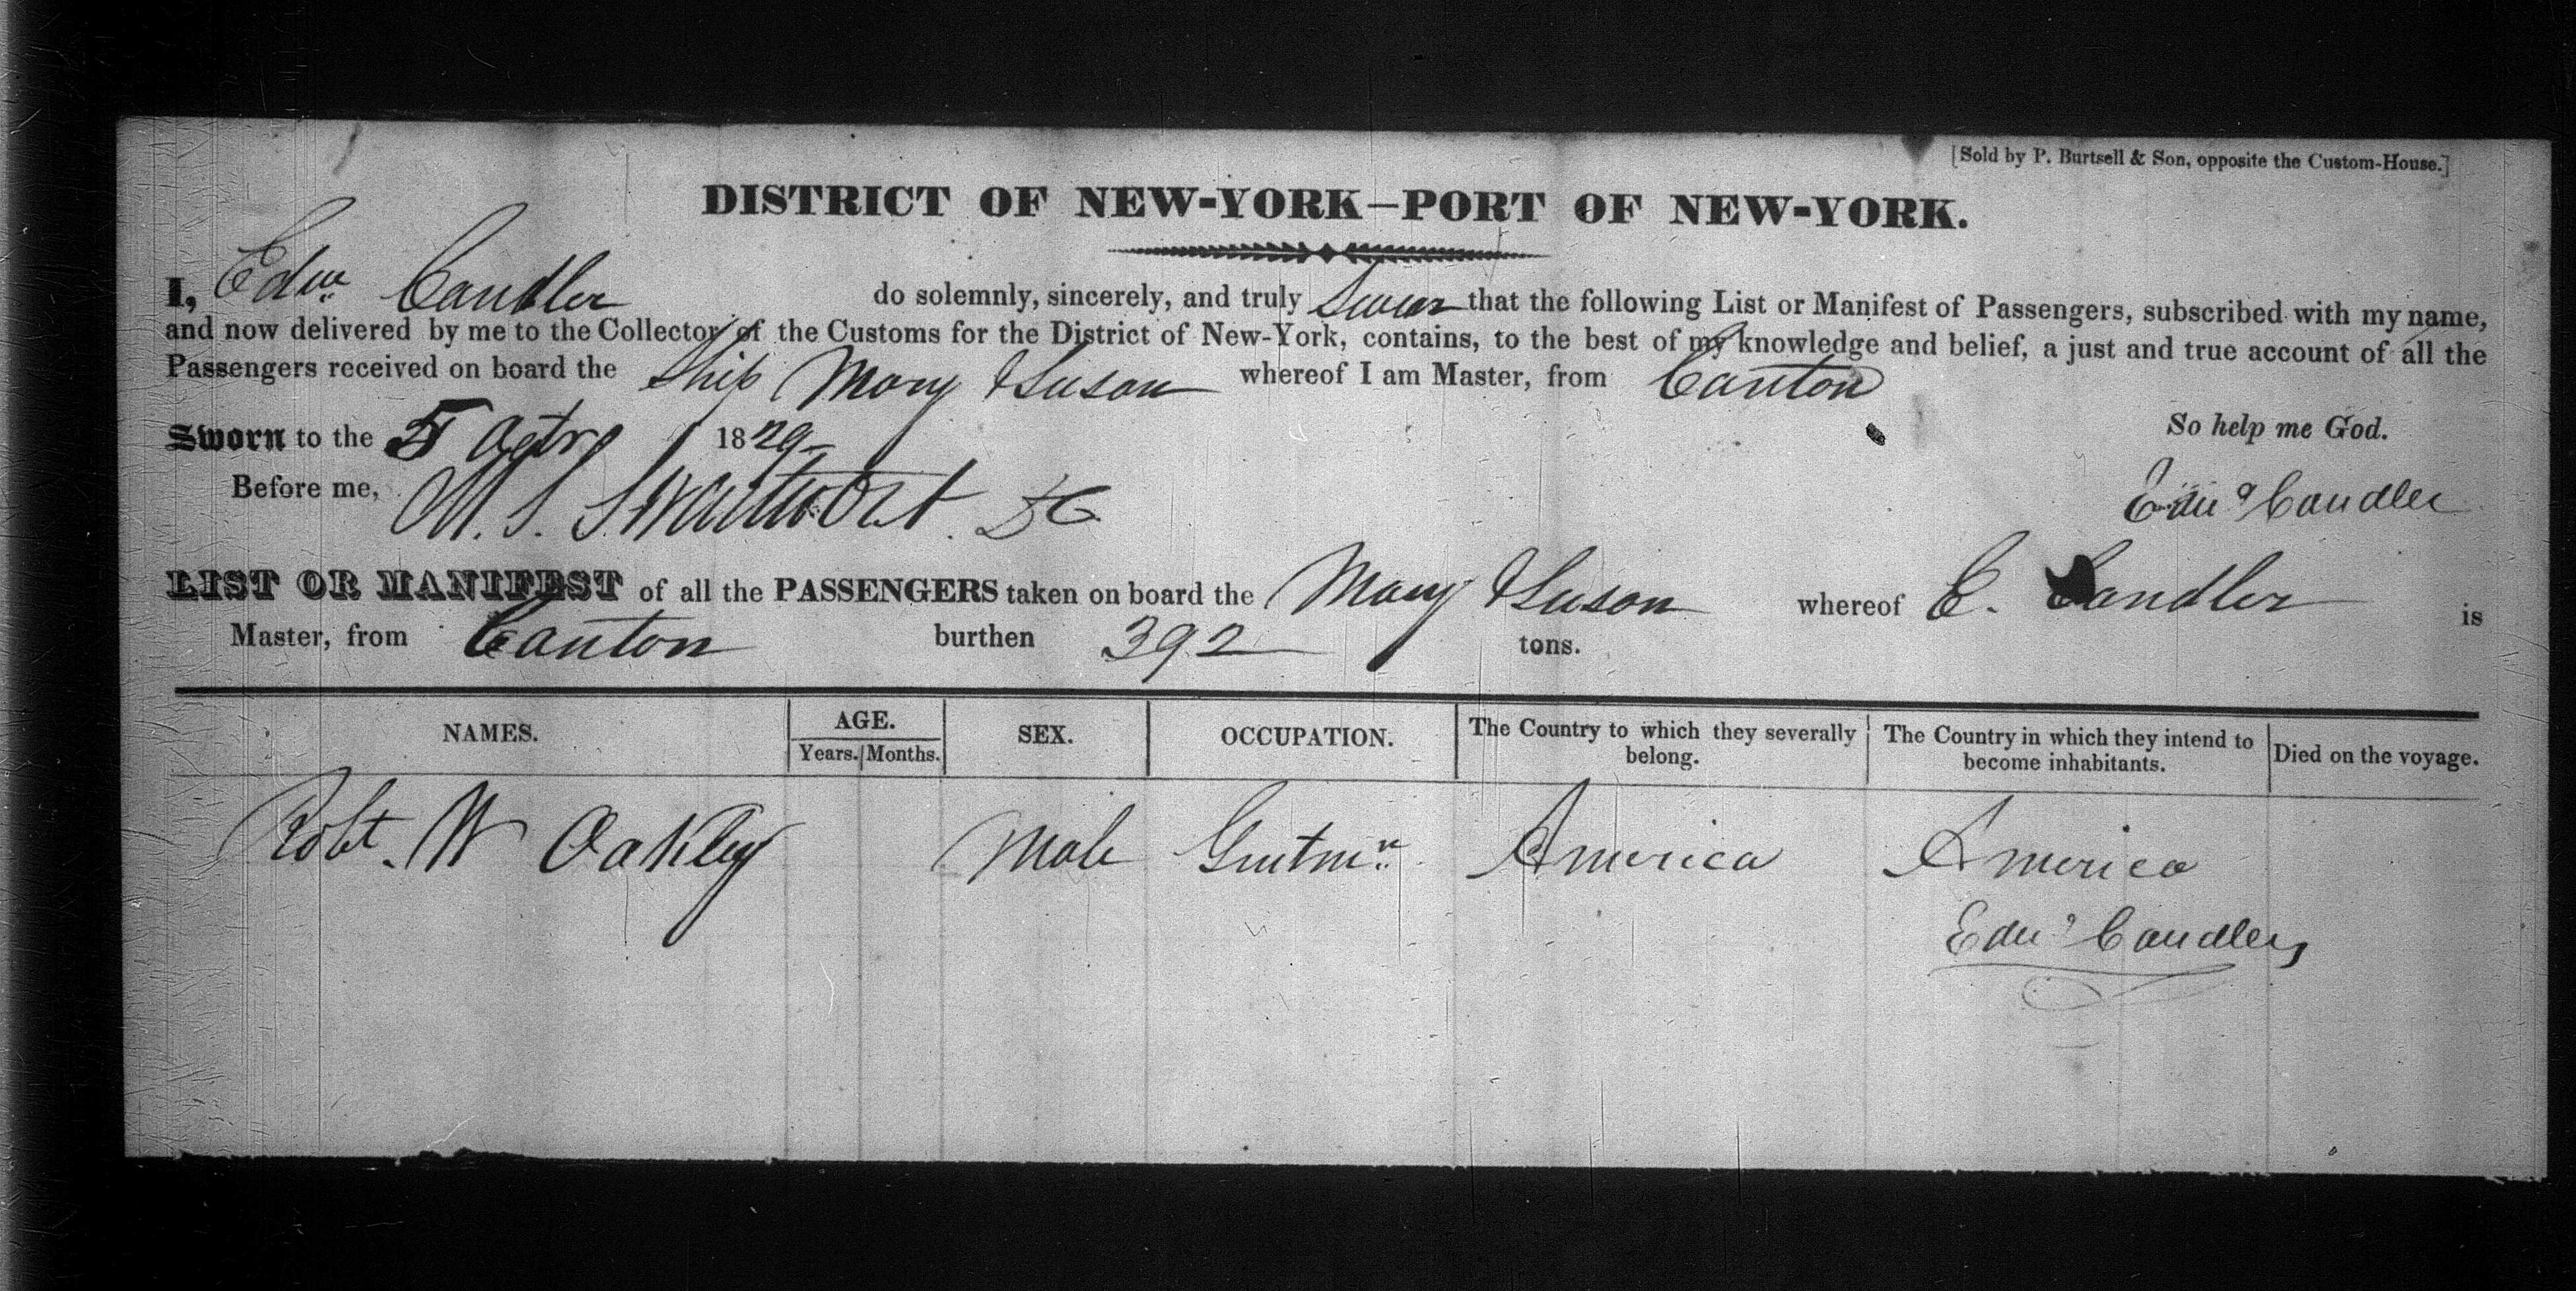 [Sold by P. Burtsell & Son, opposite the Custom-House.]
DISTRICT OF NEW-YORK—PORT OF NEW-YORK.
I, Edw Candler do solemnly, sincerely, and truly Swear that the following List or Manifest of Passengers, subscribed with my name,
and now delivered by me to the Collector of the Customs for the District of New-York, contains, to the best of my knowledge and belief, a just and true account of all the
Passengers received on board the Ship Mary & Susan whereof I am Master, from Canton
So help me God.
Sworn to the 5 1829
Before me, M. S. Swartwout DC
Edwd Candler
LIST OR MANIFEST of all the PASSENGERS taken on board the Mary & Susan whereof E. Candler is
Master, from Canton burthen 392 tons.
NAMES. AGE. SEX. OCCUPATION. The Country to which they severally belong. The Country in which they intend to become inhabitants. Died on the voyage.
Years. Months.
Robt. W Oakley Male Gentmn America America
Edwd Candler